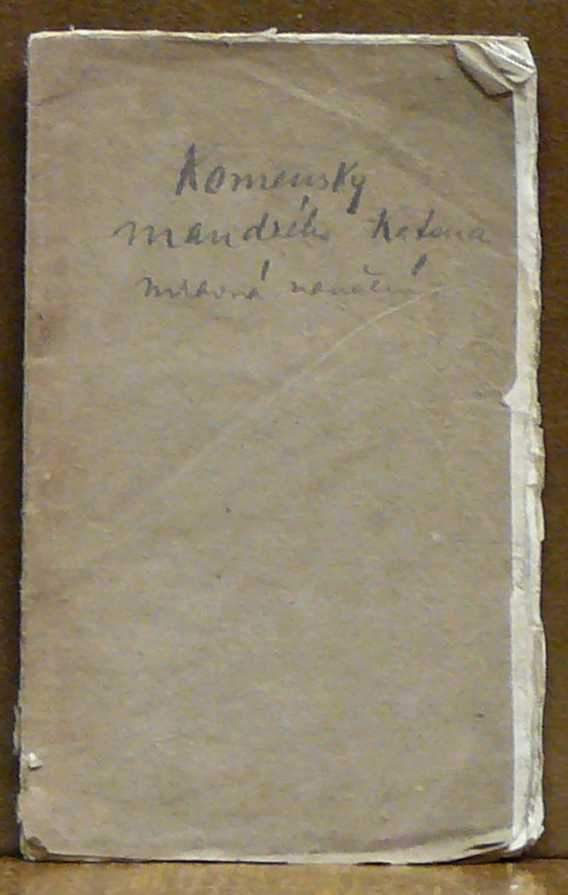 Komenský
mandrého Katona
mravná naučení